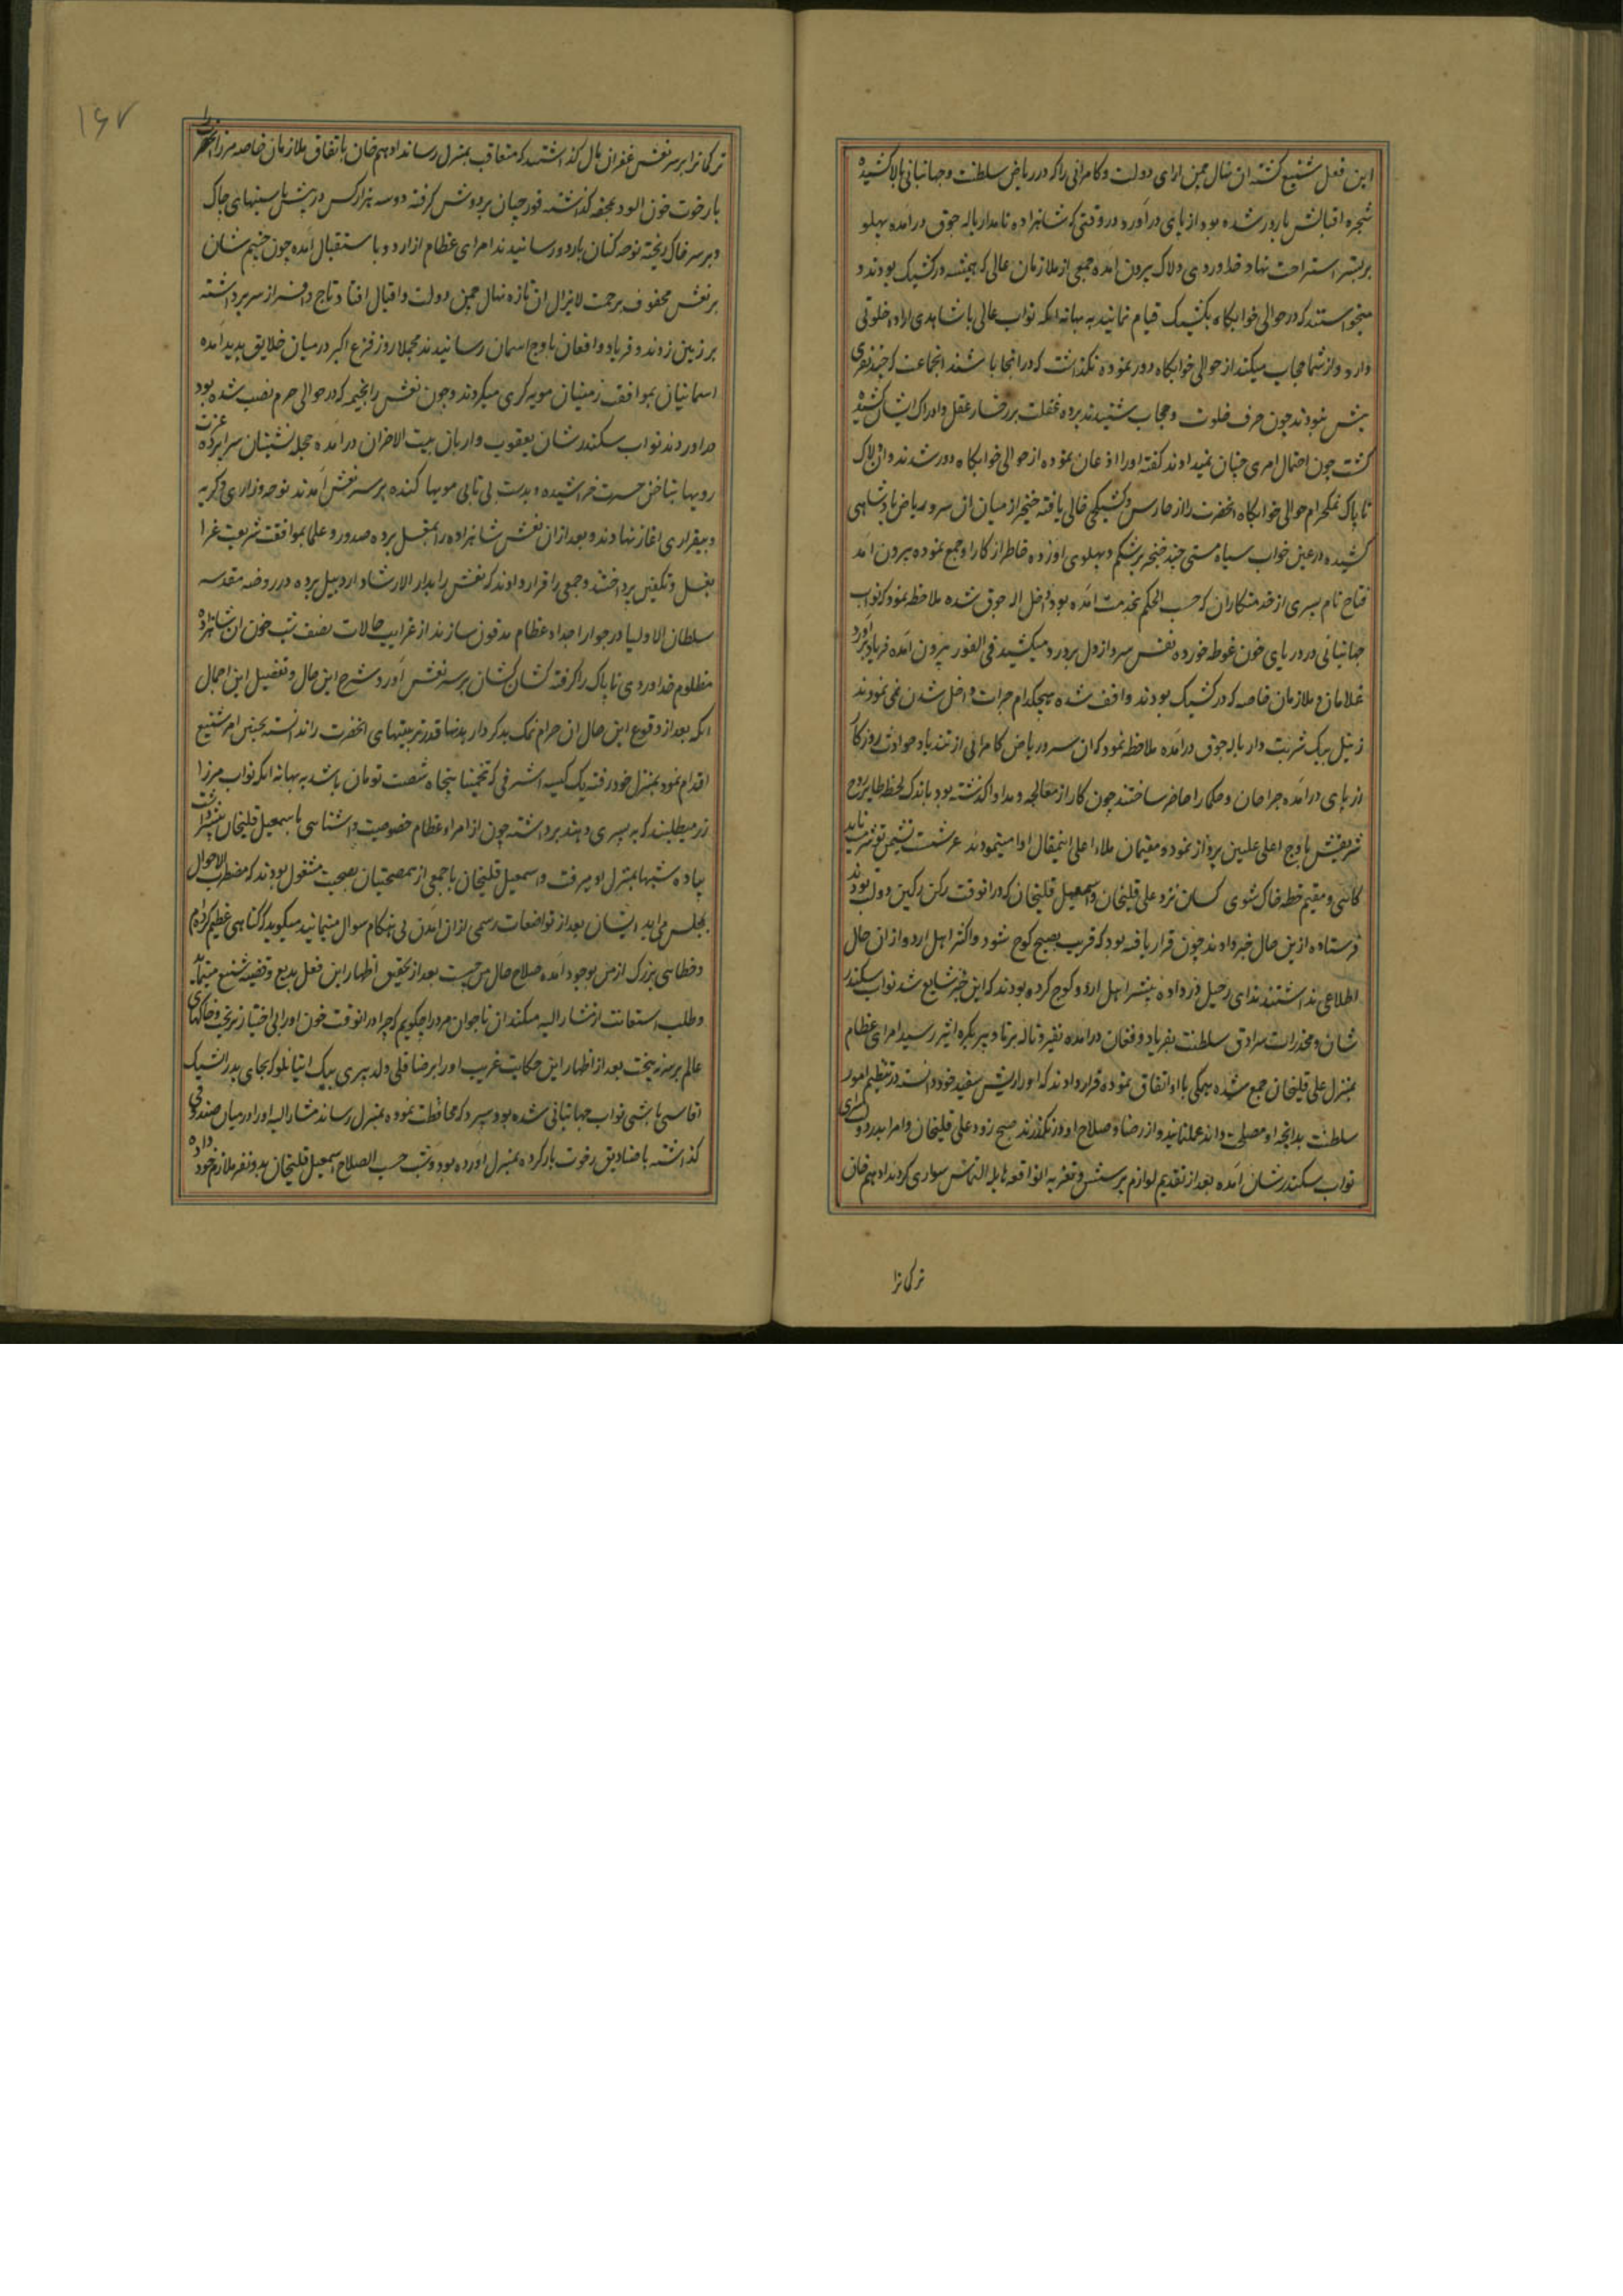 این فعل شنیع کشته ان نهال چمن ارای دولت و کامرانی را که در ریاض سلطنت و جهانبانی بالا کشیده
شجره اقبالش بارور شده بود از پای دراورد و در وقتی که شاهزاده نامدار باله جوق درامده پهلو
بر بستر استراحت نهاد خداوردی دلاک بیرون امده جمعی از ملازمان عالی که همیشه در کشیک بودند و
میخواستند که در حوالی خوابکاه بکشیک قیام نمانید به بهانه انکه نواب عالی با شاهدی اراده خلوتی
دارد و از شما حجاب میکند از حوالی خوابکاه دور نموده نکذاشت که در انجا باشند انجماعت که چند نفری
بیش نبودند چون حرف خلوت و حجاب شنیدند پرده غفلت بر رخسار عقل و ادراک ایشان کشیده
کشت چون احتمال امری چنان نمیدادند کفته او را اذعان نموده از حوالی خوابکاه دور شدند و ان دلاک
ناپاک نمکحرام حوالی خوابکاه انحضرت را از حارس و کشیکچی خالی یافته خنجر از میان ان سرو ریاض پادشاهی
کشیده در عین خواب سیاه مستی چند خنجر بر شکم و پهلوی او زده خاطر از کار او جمع نموده بیرون امد
فتاح نام پسری از خدمتکاران که حسب الحکم بخدمت امده بود داخل اله جوق شده ملاحظه نمود که نواب
جهانبانی در دریای خون غوطه خورده نفس سرد از دل پردرد میکشید فی الفور بیرون امده فریاد براورد
غلامان و ملازمان خاصه که در کشیک بودند واقف شده هیچکدام جرات داخل شدن نمی نمودند
زنبل بیک شربت دار باله جوق درامده ملاحظه نمود که ان سرو ریاض کامرانی از تندباد حوادث روزکار
از پای درامده جراحان و حکما را حاضر ساختند چون کار از معالجه و مداوا کذشته بود باندک لحظه طایر روح
شریفش باوج اعلی علیین پرواز نمود و مقیمان ملاء اعلی اینمقال ادا مینمودند عرشست نشیمن تو شرمت ناید
کائی و مقیم خطه خاک شوی کسان نزد علی قلیخان و اسمعیل قلیخان که در انوقت رکن رکین دولت بودند
فرستاده ازین حال خبر دادند چون قرار یافته بود که قریب بصبح کوچ شود و اکثر اهل اردو از ان حال
اطلاعی نداشتند ندای رحیل در داده بیشتر اهل اردو کوچ کرده بودند که این خبر شایع شد نواب سکندر
شان و مخدرات سرادق سلطنت بفریاد و فغان درامده نفیر و ناله برنا و پیر بکره اثیر رسید امرای عظام
بمنزل علی قلیخان جمع شده همکی با او اتفاق نموده قرار دادند که او را ریش سفید خود دانسته در تنظیم امور
سلطنت بدانچه او مصلحت داند عملنمایند و از رضا و صلاح او در نکذرند صبح زود علی قلیخان و امرا بدر دولتسرای
نواب سکندرشان امده بعد از تقدیم لوازم پرسش و تعزیه الواقعه هایله التماس سواری کردند ادهم خان
ترکمانرا
۱۶۷
ترکمانرا بر سر نعش غفران مال کذاشتند که متعاقب بمنزل رساند ادهم خان باتفاق ملازمان خاصه میرزا انحضرت را
با رخوت خون الود بمحفه کذاشته قورچیان بر دوش کرفته دو سه هزار کس در پیش با سینهای چاک
و بر سر خاک ریخته نوحه کنان باردو رسانیدند امرای عظام از اردو باستقبال امده چون چشم شان
بر نعش محفوف برحمت لایزال ان تازه نهال چمن دولت و اقبال افتاد تاج و افسر از سر برداشته
بر زمین زدند و فریاد و افغان باوج اسمان رسانیدند مجملا روز فزع اکبر در میان خلایق پدید امده
اسمانیان بموافقت زمینیان مویه کری میکردند و چون نعش را بخیمه که در حوالی حرم نصب شده بود
دراوردند نواب سکندرشان یعقوب وار بان بیت الاحزان درامده حجله نشینان سراپرده عزت
رویها بناخن حسرت خراشیده و بدست بی تابی مویها کنده بر سر نعش امدند نوحه و زاری و کریه
و بیقراری اغاز نهادند و بعد از ان نعش شاهزاده را بمغسل برده صدور و علما بموافقت شریعت غرا
بغسل و تکفین پرداختند و جمعی را قرار دادند که نعش را بدار الارشاد اردبیل برده در روضه مقدسه
سلطان الاولیا در جوار اجداد عظام مدفون سازند از غرایب حالات نصف شب خون ان شاهزاده
مظلوم خداوردی ناپاک را کرفته کشان کشان بر سر نعش اورد شرح این حال و تفصیل این اجمال
انکه بعد از وقوع این حال ان حرام نمک بدکردار بدنها قدر تربیتهای انحضرت را ندانسته بچنین امر شنیع
اقدام نمود بمنزل خود رفته یک کیسه اشرفی که تخمینا پنجاه شصت تومان باشد به بهانه انکه نواب میرزا
زر میطلبند که به پسری دهند برداشته چون از امراء عظام خصوصیت و اشناسی با اسمعیل قلیخان بیشتر داشت
پیاده شبها بمنزل او میرفت و اسمعیل قلیخان با جمعی از مصحبتیان بصحبت مشغول بودند که مضطرب الاحوال
بمجلس می اید ایشان بعد از تواضعات رسمی از ان امدن بی هنکام سوال مینمایند میکوید که کناهی عظیم کرده ام
و خطاسی بزرک از من بوجود امده صلاح حال من چیست بعد از تحقیق اظهار این فعل بدیع و قضیه شنیع مینماید
و طلب استعانت از مشارالیه میکند ان ناجوان مرد را چکویم که چرا در انوقت خون او را بی اختیار نریخت و خاکهای
عالم بر سر نریخت بعد از اظهار این حکایت غریب او را برضا قلی ولد پیری بیک اینانلو که بجای پدر ایشیک
اقاسی باشی نواب جهانبانی شده بود سپرد که محافظت نموده بمنزل رساند مشارالیه او را در میان صندوقی
کذاشته با صنادیق رخوت بار کرده بمنزل اورده بود و شب حسب الصلاح اسمعیل قلیخان بدو نفر ملازم خود داده